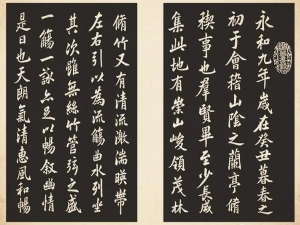 永和九年歲在癸丑暮春之
初于會稽山陰之蘭亭脩
稧事也群賢畢至少長咸
集此地有崇山峻領茂林
脩竹又有清流激湍映帶
左右引以為流觴曲水列坐
其次雖無絲竹管弦之盛
一觴一詠亦足以暢叙幽情
是日也天朗氣清惠風和暢